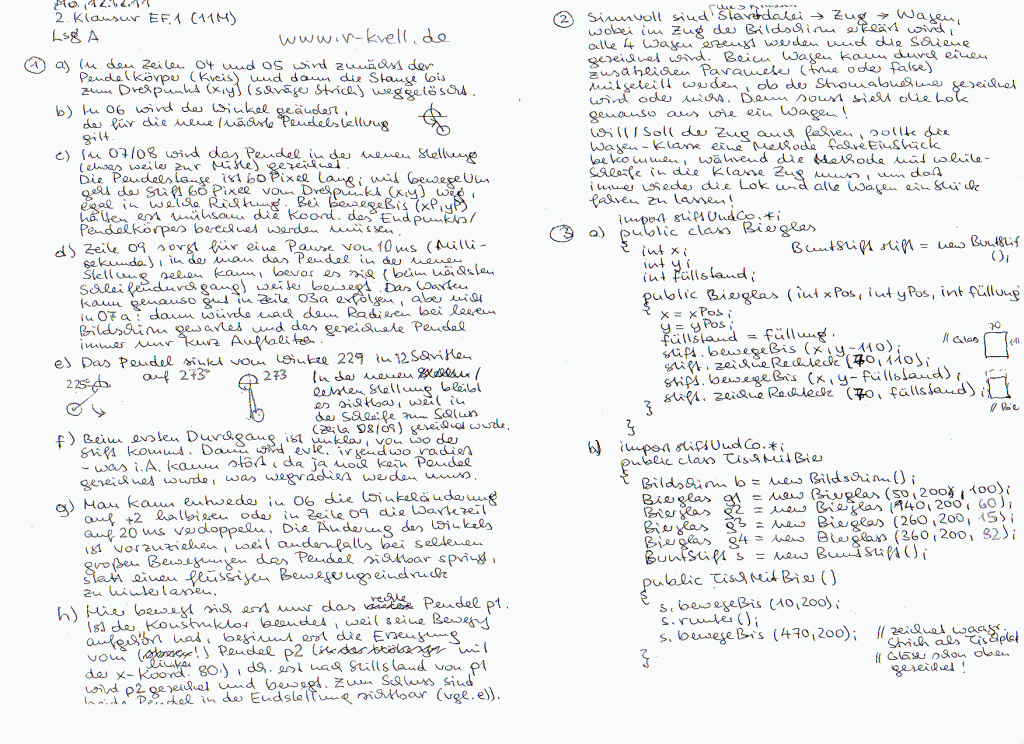 Mo., 12.12.11
2. Klausur EF,1 (11M)
Lsg A
www.r-krell.de
① a) In den Zeilen 04 und 05 wird zunächst der
Pendelkörper (Kreis) und dann die Stange bis
zum Drehpunkt (x,y) (schräger Strich) weggelöscht.
b) In 06 wird der Winkel geändert,
der für die neue/nächste Pendelstellung
gilt.
c) In 07/08 wird das Pendel in der neuen Stellung
(etwas weiter zur Mitte) gezeichnet.
Die Pendelstange ist 60 Pixel lang; mit bewegeUm
geht der Stift 60 Pixel vom Drehpunkt (x,y) weg,
egal in welche Richtung. Bei bewegeBis (xP,yP)
hätten erst mühsam die Koord. des Endpunkts/
Pendelkörpers berechnet werden müssen.
d) Zeile 09 sorgt für eine Pause von 10 ms (Milli-
sekunden), in der man das Pendel in der neuen
Stellung sehen kann, bevor es sich (beim nächsten
Schleifendurchgang) weiter bewegt. Das Warten
kann genauso gut in Zeile 03a erfolgen, aber nicht
in 07a: dann würde nach dem Radieren bei leerem
Bildschirm gewartet und das gezeichnete Pendel
immer nur kurz Aufblitzen.
e) Das Pendel sinkt vom Winkel 229 in 12 Schritten
auf 273°
225°
273
In der neuen
letzten Stellung bleibt
es sichtbar, weil in
der Schleife zum Schluss
(Zeile 08/09) gezeichnet wurde.
f) Beim ersten Durchgang ist unklar, von wo der
Stift kommt. Dann wird evtl. irgendwo radiert
- was i.A. kaum stört, da ja noch kein Pendel
gezeichnet wurde, was wegradiert werden muss.
g) Man kann entweder in 06 die Winkeländerung
auf +2 halbieren oder in Zeile 09 die Wartezeit
auf 20 ms verdoppeln. Die Änderung des Winkels
ist vorzuziehen, weil andernfalls bei seltenen
großen Bewegungen das Pendel sichtbar springt,
statt einen flüssigen Bewegungseindruck
zu hinterlassen.
h) Hier bewegt sich erst nur das rechte Pendel p1.
Ist der Konstruktor beendet, weil seine Bewegg
aufgehört hat, beginnt erst die Erzeugung
vom linken Pendel p2 mit
der x-Koord. 80.), d.h. erst nach Stillstand von p1
wird p2 gezeichnet und bewegt. Zum Schluss sind
beide Pendel in der Endstellung sichtbar (vgl. e)).
② Sinnvoll sind Startdatei → Zug → Wagen,
wobei im Zug der Bildschirm erklärt wird,
alle 4 Wagen erzeugt werden und die Schiene
gezeichnet wird. Beim Wagen kann durch einen
zusätzlichen Parameter (true oder false)
mitgeteilt werden, ob der Stromabnehmer gezeichnet
wird oder nicht. Denn sonst sieht die Lok
genauso aus wie ein Wagen!
Will/Soll der Zug auch fahren, sollte die
Wagen-Klasse eine Methode fahreEinStück
bekommen, während die Methode mit while-
Schleife in die Klasse Zug muss, um dort
immer wieder die Lok und alle Wagen ein Stück
fahren zu lassen!
import stiftUndCo.*;
③ a) public class Bierglas
{ int x; BuntStift stift = new BuntStift
int y; ();
int füllstand;
public Bierglas (int xPos, int yPos, int füllung
{ x = xPos;
y = yPos;
füllstand = füllung.
stift. bewegeBis (x, y-110); // Glas 70
stift. zeichneRechteck (70, 110); 110
stift. bewegeBis (x, y-füllstand);
stift. zeichneRechteck (70, füllstand);
} // Bier
}
b) import stiftUndCo.*;
public class TischMitBier
{ Bildschirm b = new Bildschirm();
Bierglas g1 = new Bierglas (50, 200, 100);
Bierglas g2 = new Bierglas (140, 200, 60);
Bierglas g3 = new Bierglas (260, 200, 15);
Bierglas g4 = new Bierglas (360, 200, 82);
BuntStift s = new BuntStift();
public TischMitBier()
{
s. bewegeBis (10,200);
s. runter();
s. bewegeBis (470,200); // zeichnet waagr.
Strich als Tischplatt
} // Gläser schon oben
gezeichnet!